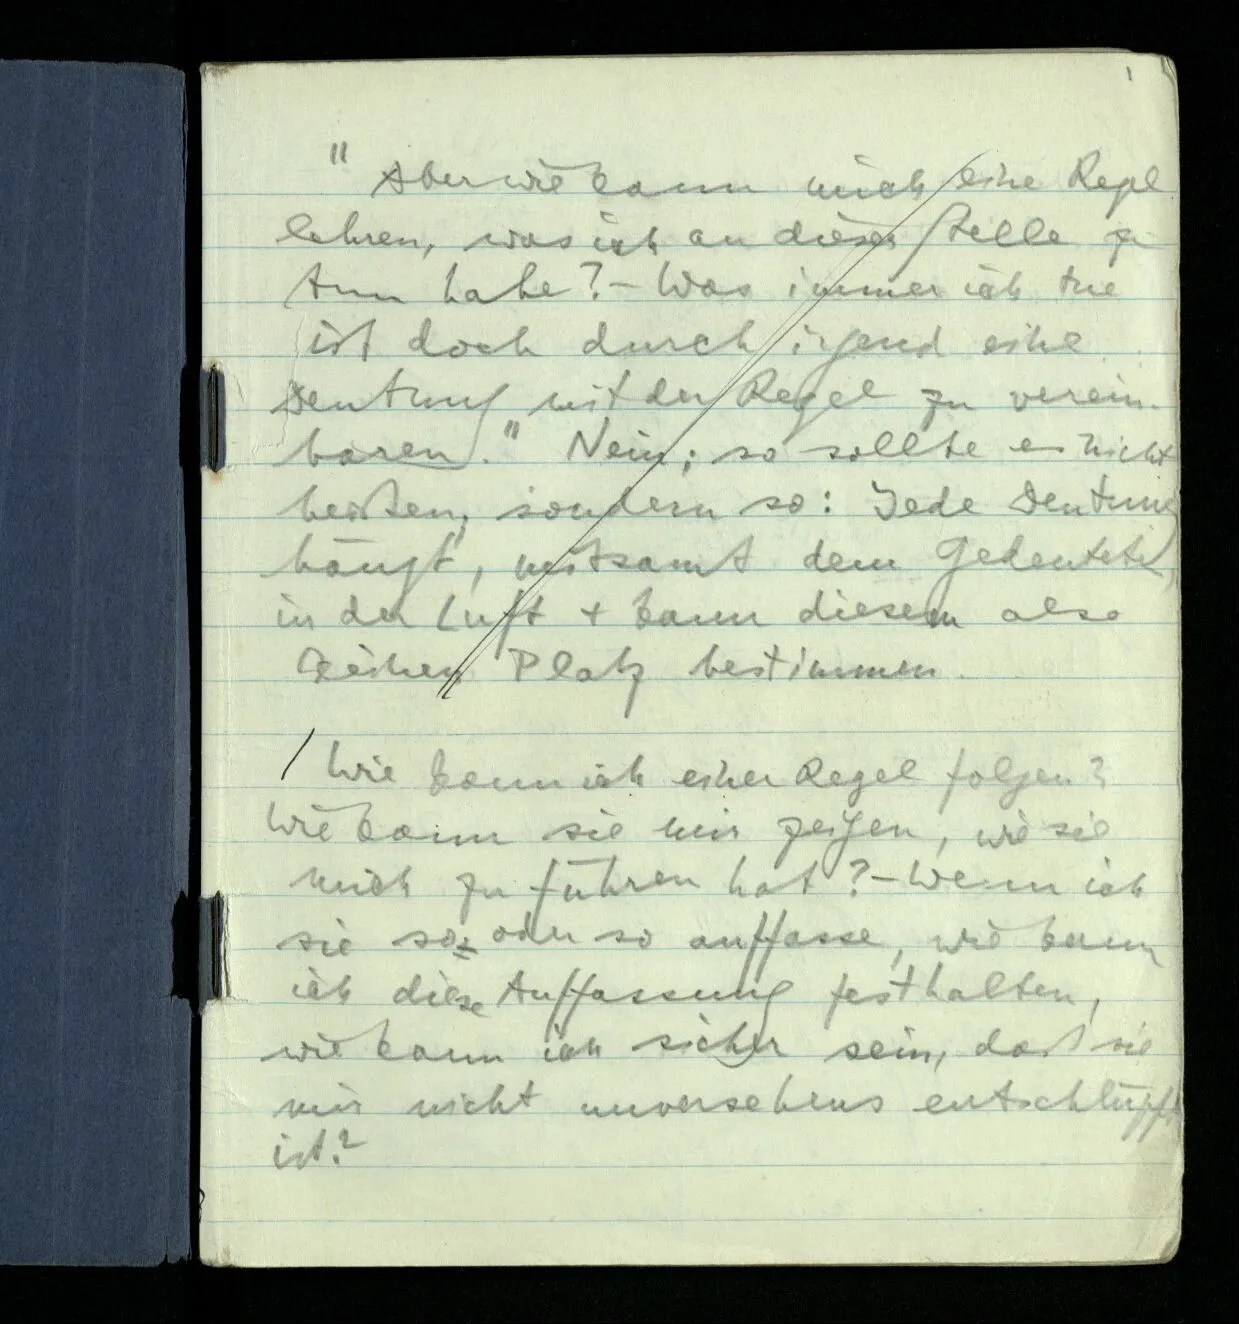 1
" Aber wie kann mich eine Regel
lehren, was ich an dieser Stelle zu
tun habe? – Was immer ich tue
ist doch durch irgend eine
Deutung mit der Regel zu verein-
baren." Nein; so sollte es nicht
heißen, sondern so: Jede Deutung
hängt, mitsamt dem Gedeuteten,
in der Luft + kann diesem also
keinen Platz bestimmen.
/ Wie kann ich einer Regel folgen?
Wie kann sie mir zeigen, wie sie
mich zu führen hat? – Wenn ich
sie so oder so auffasse, wie kann
ich diese Auffassung festhalten,
wie kann ich sicher sein, daß sie
mir nicht unversehens entschlüpft
ist?